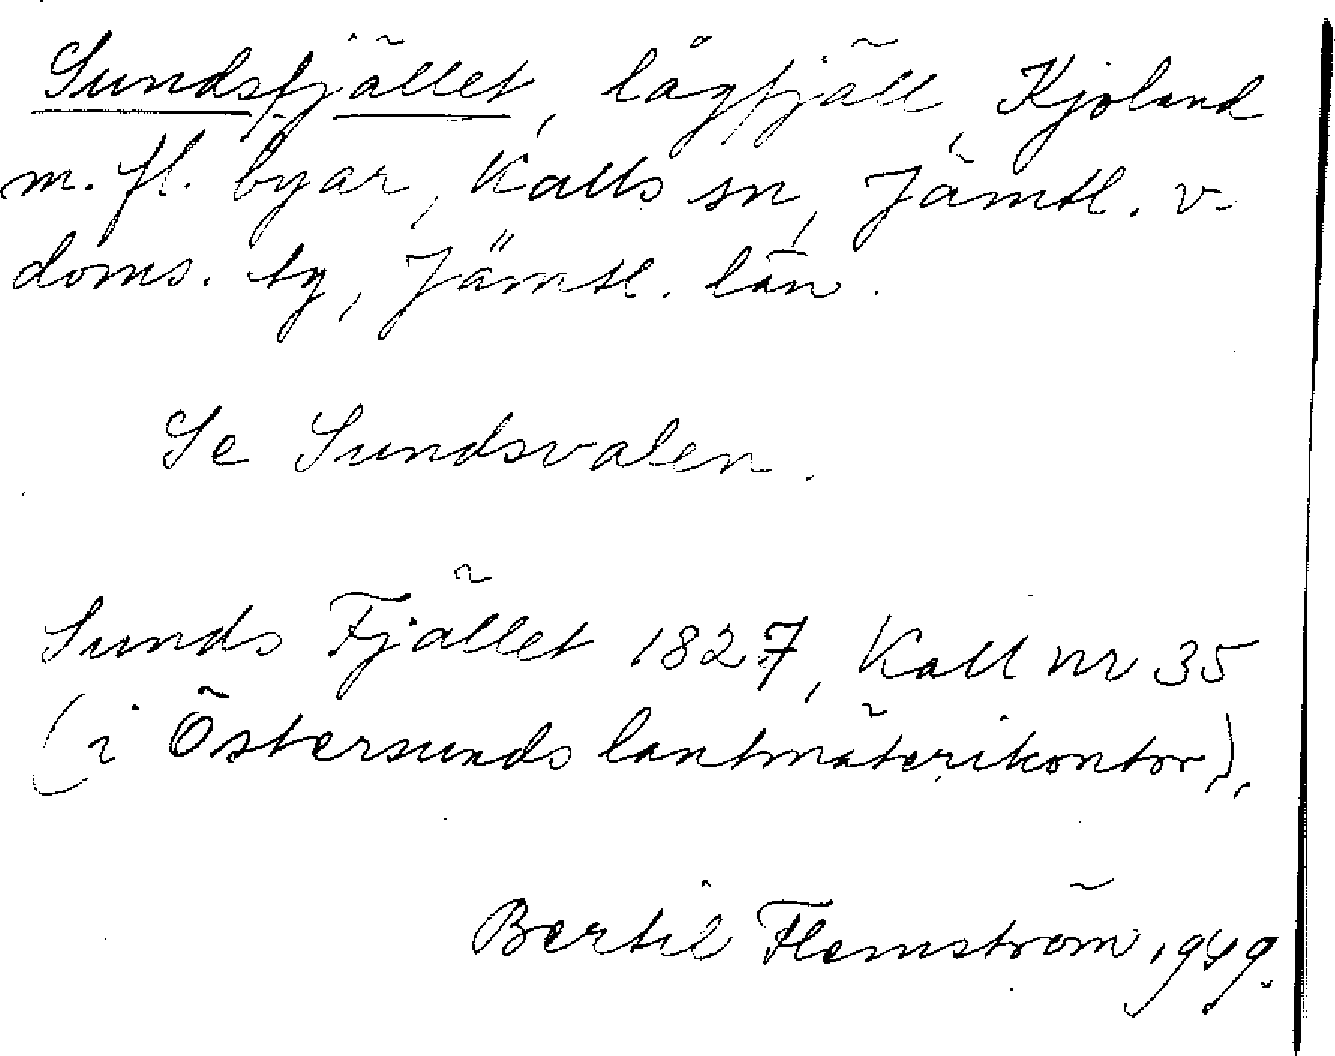 Sundsfjället, lågfjäll, Kjoland
m. fl. byar, Kalls sn, Jämtl. v.
doms. tg, Jämtl. län.
Se Sundsvalen.
Sunds Fjället 1827, Kall nr 35
(i Östersunds lantmäterikontor).
Bertil Flemström 1949.